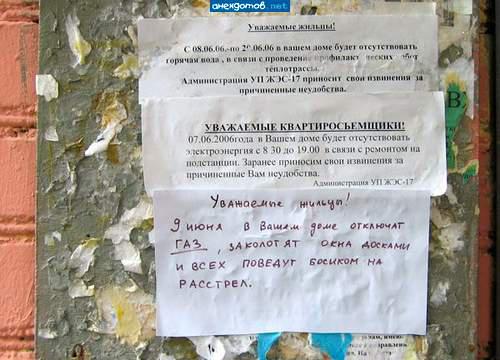 анекдотов.net
Уважаемые жильцы!
С 08.06.06-по 20.06.06 в вашем доме будет отсутствовать
горячая вода , в связи с проведение профилактических работ
теплотрассы.
Администрация УП ЖЭС-17 приносит свои извинения за
причиненные неудобства.
УВАЖАЕМЫЕ КВАРТИРОСЪЕМЩИКИ!
07.06.2006года в Вашем доме будет отсутствовать
электроэнергия с 8 30 до 19.00 в связи с ремонтом на
подстанции. Заранее приносим свои извинения за
причиненные Вам неудобства.
Администрация УП ЖЭС-17
Уважаемые жильцы!
9 июня в Вашем доме отключат
ГАЗ, заколотят окна досками
и всех поведут босиком на
расстрел.